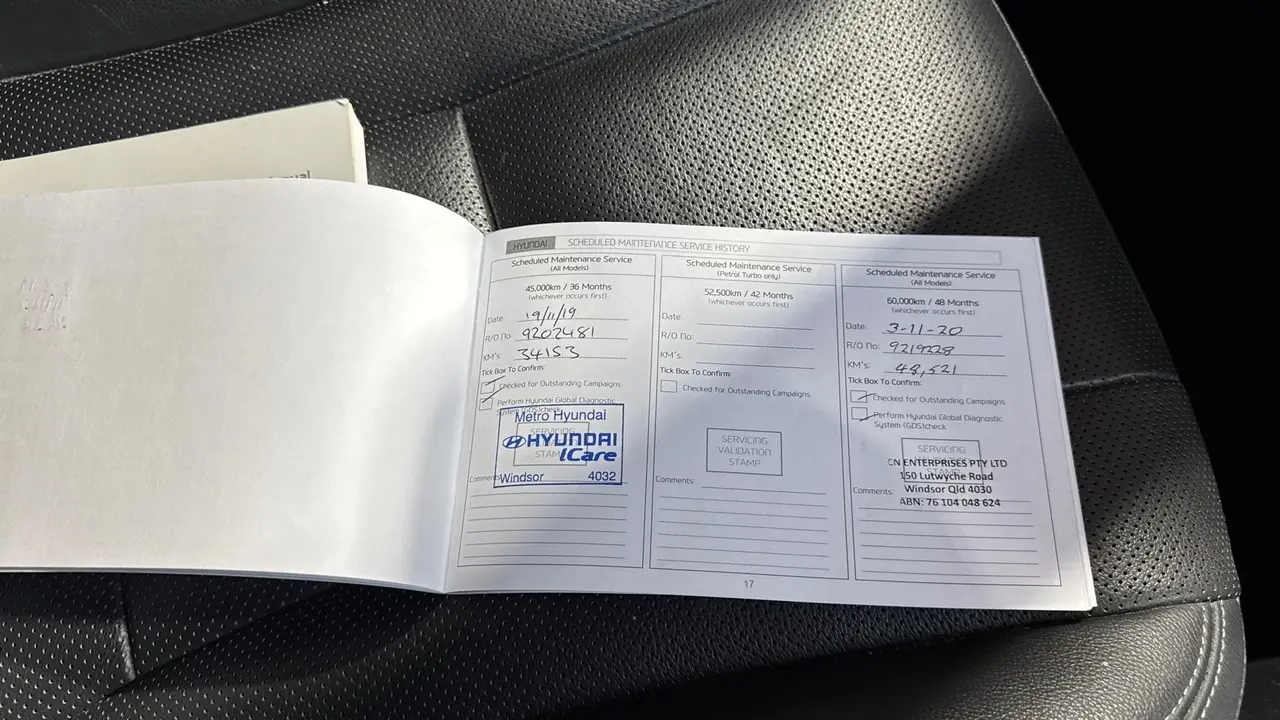 HYUNDAI SCHEDULED MAINTENANCE SERVICE HISTORY
Scheduled Maintenance Service
(All Models)
45,000km / 36 Months
(whichever occurs first)
Date: 19/11/19
R/O No: 9202481
KM's: 34153
Tick Box To Confirm:
Checked for Outstanding Campaigns
Perform Hyundai Global Diagnostic
System (GDS)check
Metro Hyundai
HYUNDAI
iCare
Windsor 4032
SERVICING
STAMP
Comments:
Scheduled Maintenance Service
(Petrol Turbo only)
52,500km / 42 Months
(whichever occurs first)
Date:
R/O No:
KM's:
Tick Box To Confirm:
Checked for Outstanding Campaigns
SERVICING
VALIDATION
STAMP
Comments:
Scheduled Maintenance Service
(All Models)
60,000km / 48 Months
(whichever occurs first)
Date: 3-11-20
R/O No: 9219228
KM's: 48,521
Tick Box To Confirm:
Checked for Outstanding Campaigns
Perform Hyundai Global Diagnostic
System (GDS)check
SERVICING
VALIDATION
STAMP
CN ENTERPRISES PTY LTD
150 Lutwyche Road
Windsor Qld 4030
ABN: 76 104 048 624
Comments:
17